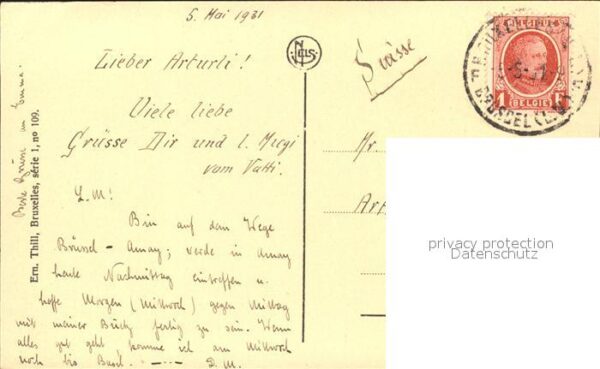 5. Mai 1931
Lieber Arturli!
Viele liebe
Grüsse Dir und l. Mugi
vom Vatti.
L. M!
Bin auf dem Wege
Brüssel - Amay; werde in Amay
heute Nachmittag eintreffen u.
hoffe Morgen (Mittwoch) gegen Mittag
mit meiner fertig zu sein. Wenn
alles gut geht komme ich am Mittwoch
noch bis Basel.
D. M.
Beste Grüsse an Emma!
Ern. Thill, Bruxelles, série 1, no 109.
NELS
Suisse
Mr
Art
BELGIE
1 F
BELGIE
privacy protection
Datenschutz